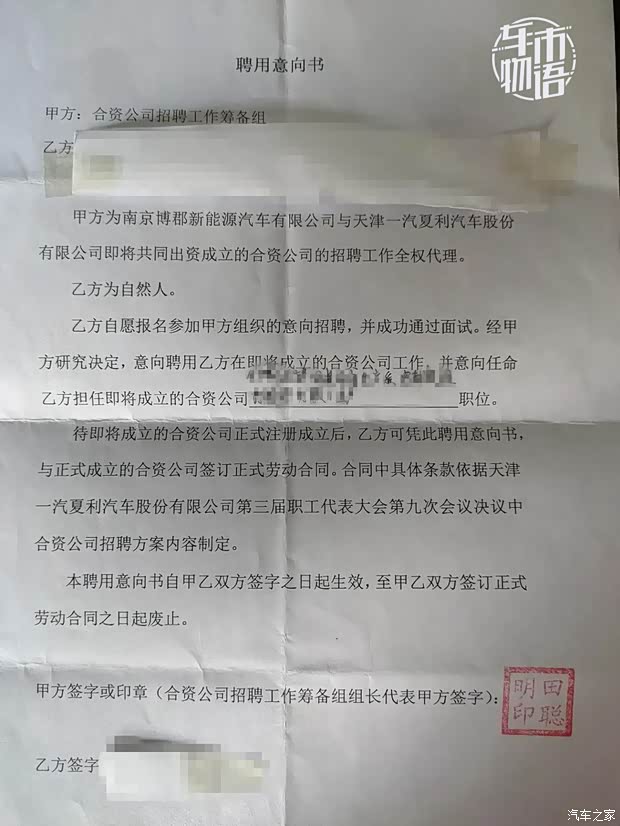 车市物语
聘用意向书
甲方：合资公司招聘工作筹备组
乙方
甲方为南京博郡新能源汽车有限公司与天津一汽夏利汽车股份
有限公司即将共同出资成立的合资公司的招聘工作全权代理。
乙方为自然人。
乙方自愿报名参加甲方组织的意向招聘，并成功通过面试。经甲
方研究决定，意向聘用乙方在即将成立的合资公司工作，并意向任命
乙方担任即将成立的合资公司 职位。
待即将成立的合资公司正式注册成立后，乙方可凭此聘用意向书，
与正式成立的合资公司签订正式劳动合同。合同中具体条款依据天津
一汽夏利汽车股份有限公司第三届职工代表大会第九次会议决议中
合资公司招聘方案内容制定。
本聘用意向书自甲乙双方签字之日起生效，至甲乙双方签订正式
劳动合同之日起废止。
甲方签字或印章（合资公司招聘工作筹备组组长代表甲方签字）：
田聪明印
乙方签字
汽车之家